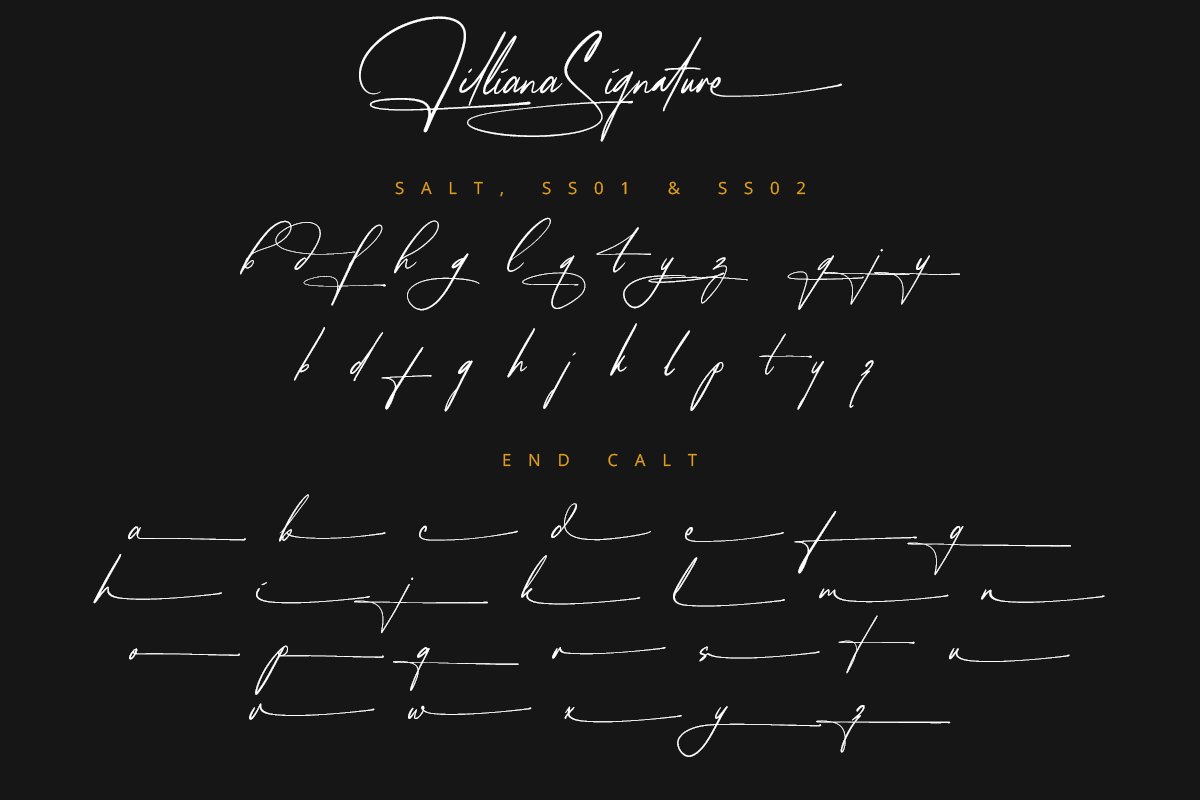 Jilliana Signature
SALT, SS01 & SS02
b d f h g l q t y z g j y
b d f g h j k l p t y z
END CALT
a b c d e f g
h i j k l m n
o p q r s t u
v w x y z